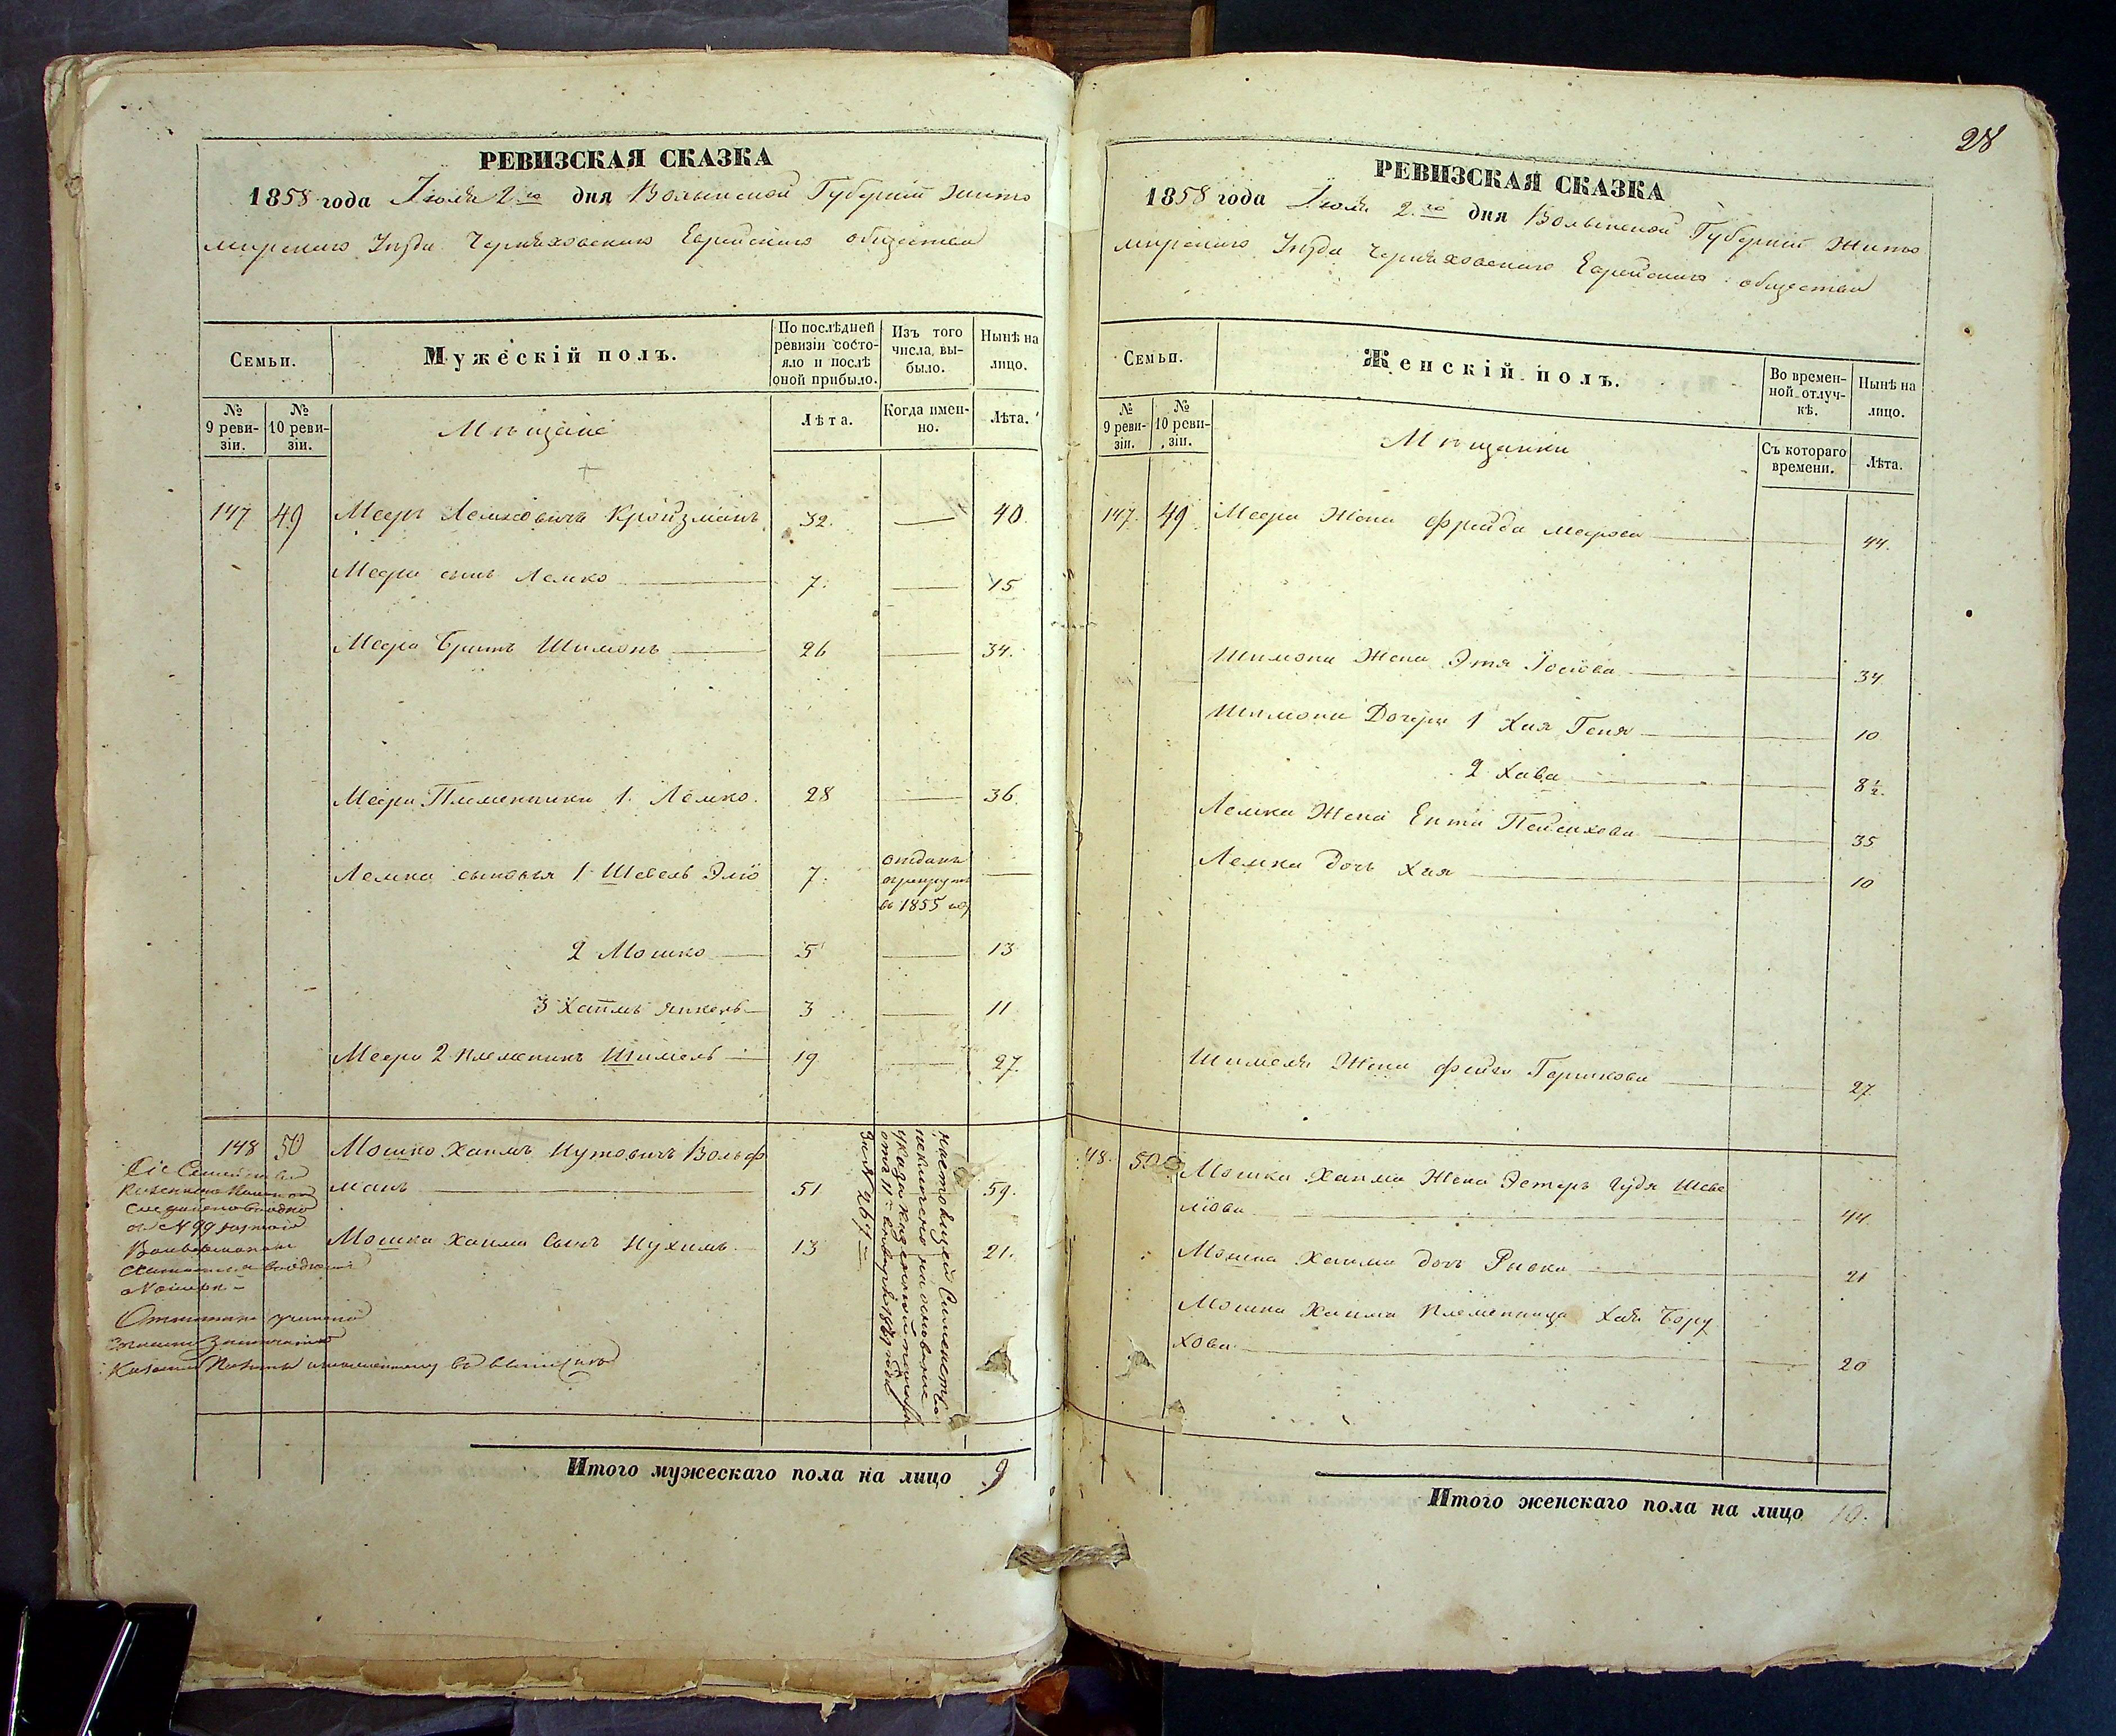 РЕВИЗСКАЯ СКАЗКА
1858 года Іюля 2.го дня Волынской Губерніи Жито
мирскаго Уѣзда Черняховскаго Еврейскаго общества
Семьи.
Мужескій полъ.
По послѣдней ревизіи состояло и послѣ оной прибыло.
Изъ того числа, выбыло.
Нынѣ на лицо.
№ 9 ревизіи.
№ 10 ревизіи.
Мѣщане
Лѣта.
Когда именно.
Лѣта.
147 49 Мееръ Лемковичъ Кройзманъ 32. — 40.
Меера сынъ Лемко 7. — 15
Меера братъ Шимонъ 26 — 34.
Меера Племянники 1. Лемко. 28 — 36.
Лемка сыновья 1 Шевель Эліо 7. отданъ
в рекруты
въ 1855 год —
2 Мошко 5 — 13
3 Хаимъ Янкель 3 — 11
Меера 2 племяникъ Шимель 19 — 27.
148 50 Мошко Хаимъ Нутовичъ Вольф
манъ 51 59.
Мошка Хаима Сынъ Нухимъ 13 21.
Сіе Семейство
Итого мужескаго пола на лицо 9
28
РЕВИЗСКАЯ СКАЗКА
1858 года Іюля 2.го дня Волынской Губерніи Жито
мирскаго Уѣзда Черняховскаго Еврейскаго общества
Семьи.
Женскій полъ.
Во временной отлучкѣ.
Нынѣ на лицо.
№ 9 ревизіи.
№ 10 ревизіи.
Мѣщанки
Съ котораго времени.
Лѣта.
147. 49 Меера Жена Фрейда Меерова 44.
Шимона Жена Этя Іосіова 34
Шимона Дочери 1 Хая Геня 10
2 Хава 8½.
Лемка Жена Ента Пейсихова 35
Лемка дочь Хая 10
Шимеля Жена Фейга Гершкова 27
48. 50 Мошка Хаима Жена Эстеръ Гудя Шеве
ліова 44
Мошка Хаима дочь Рывка 21
Мошка Хаима племянница Хая Бору
хова 20
Итого женскаго пола на лицо 10.